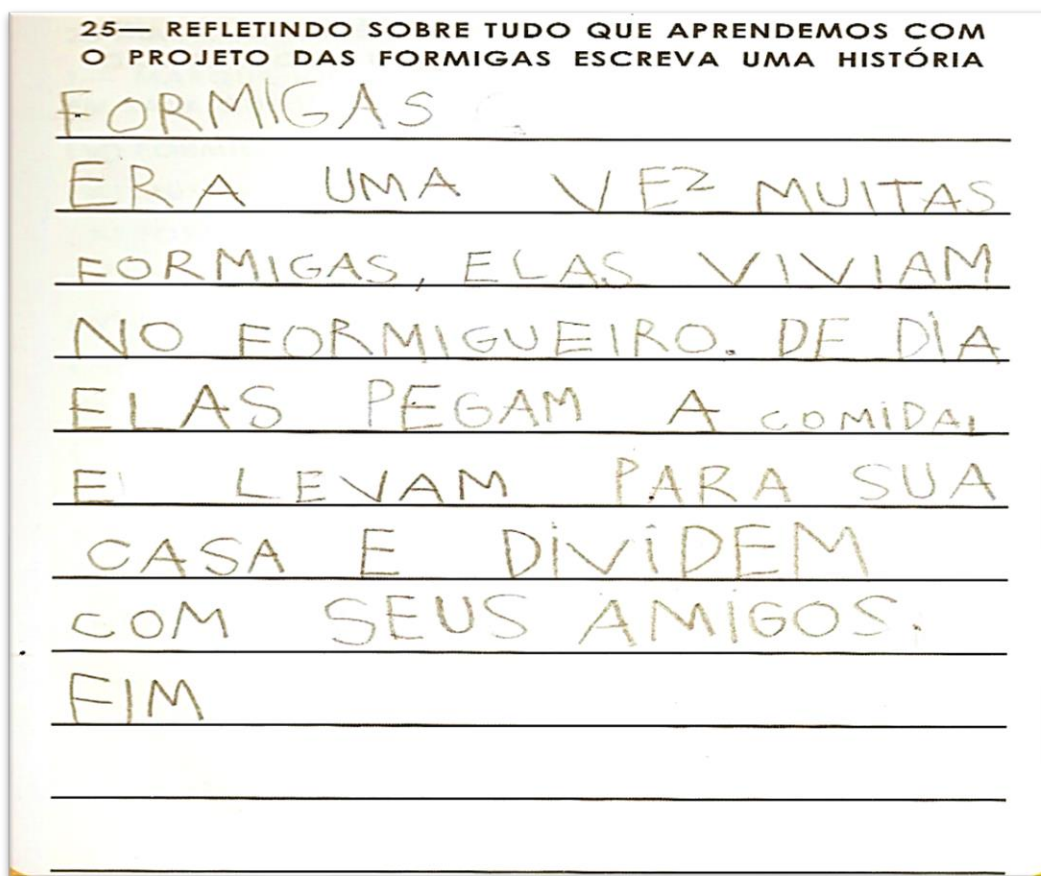 25— REFLETINDO SOBRE TUDO QUE APRENDEMOS COM
O PROJETO DAS FORMIGAS ESCREVA UMA HISTÓRIA
FORMIGAS
ERA UMA VEZ MUITAS
FORMIGAS, ELAS VIVIAM
NO FORMIGUEIRO. DE DIA
ELAS PEGAM A COMIDA,
E LEVAM PARA SUA
CASA E DIVIDEM
COM SEUS AMIGOS.
FIM